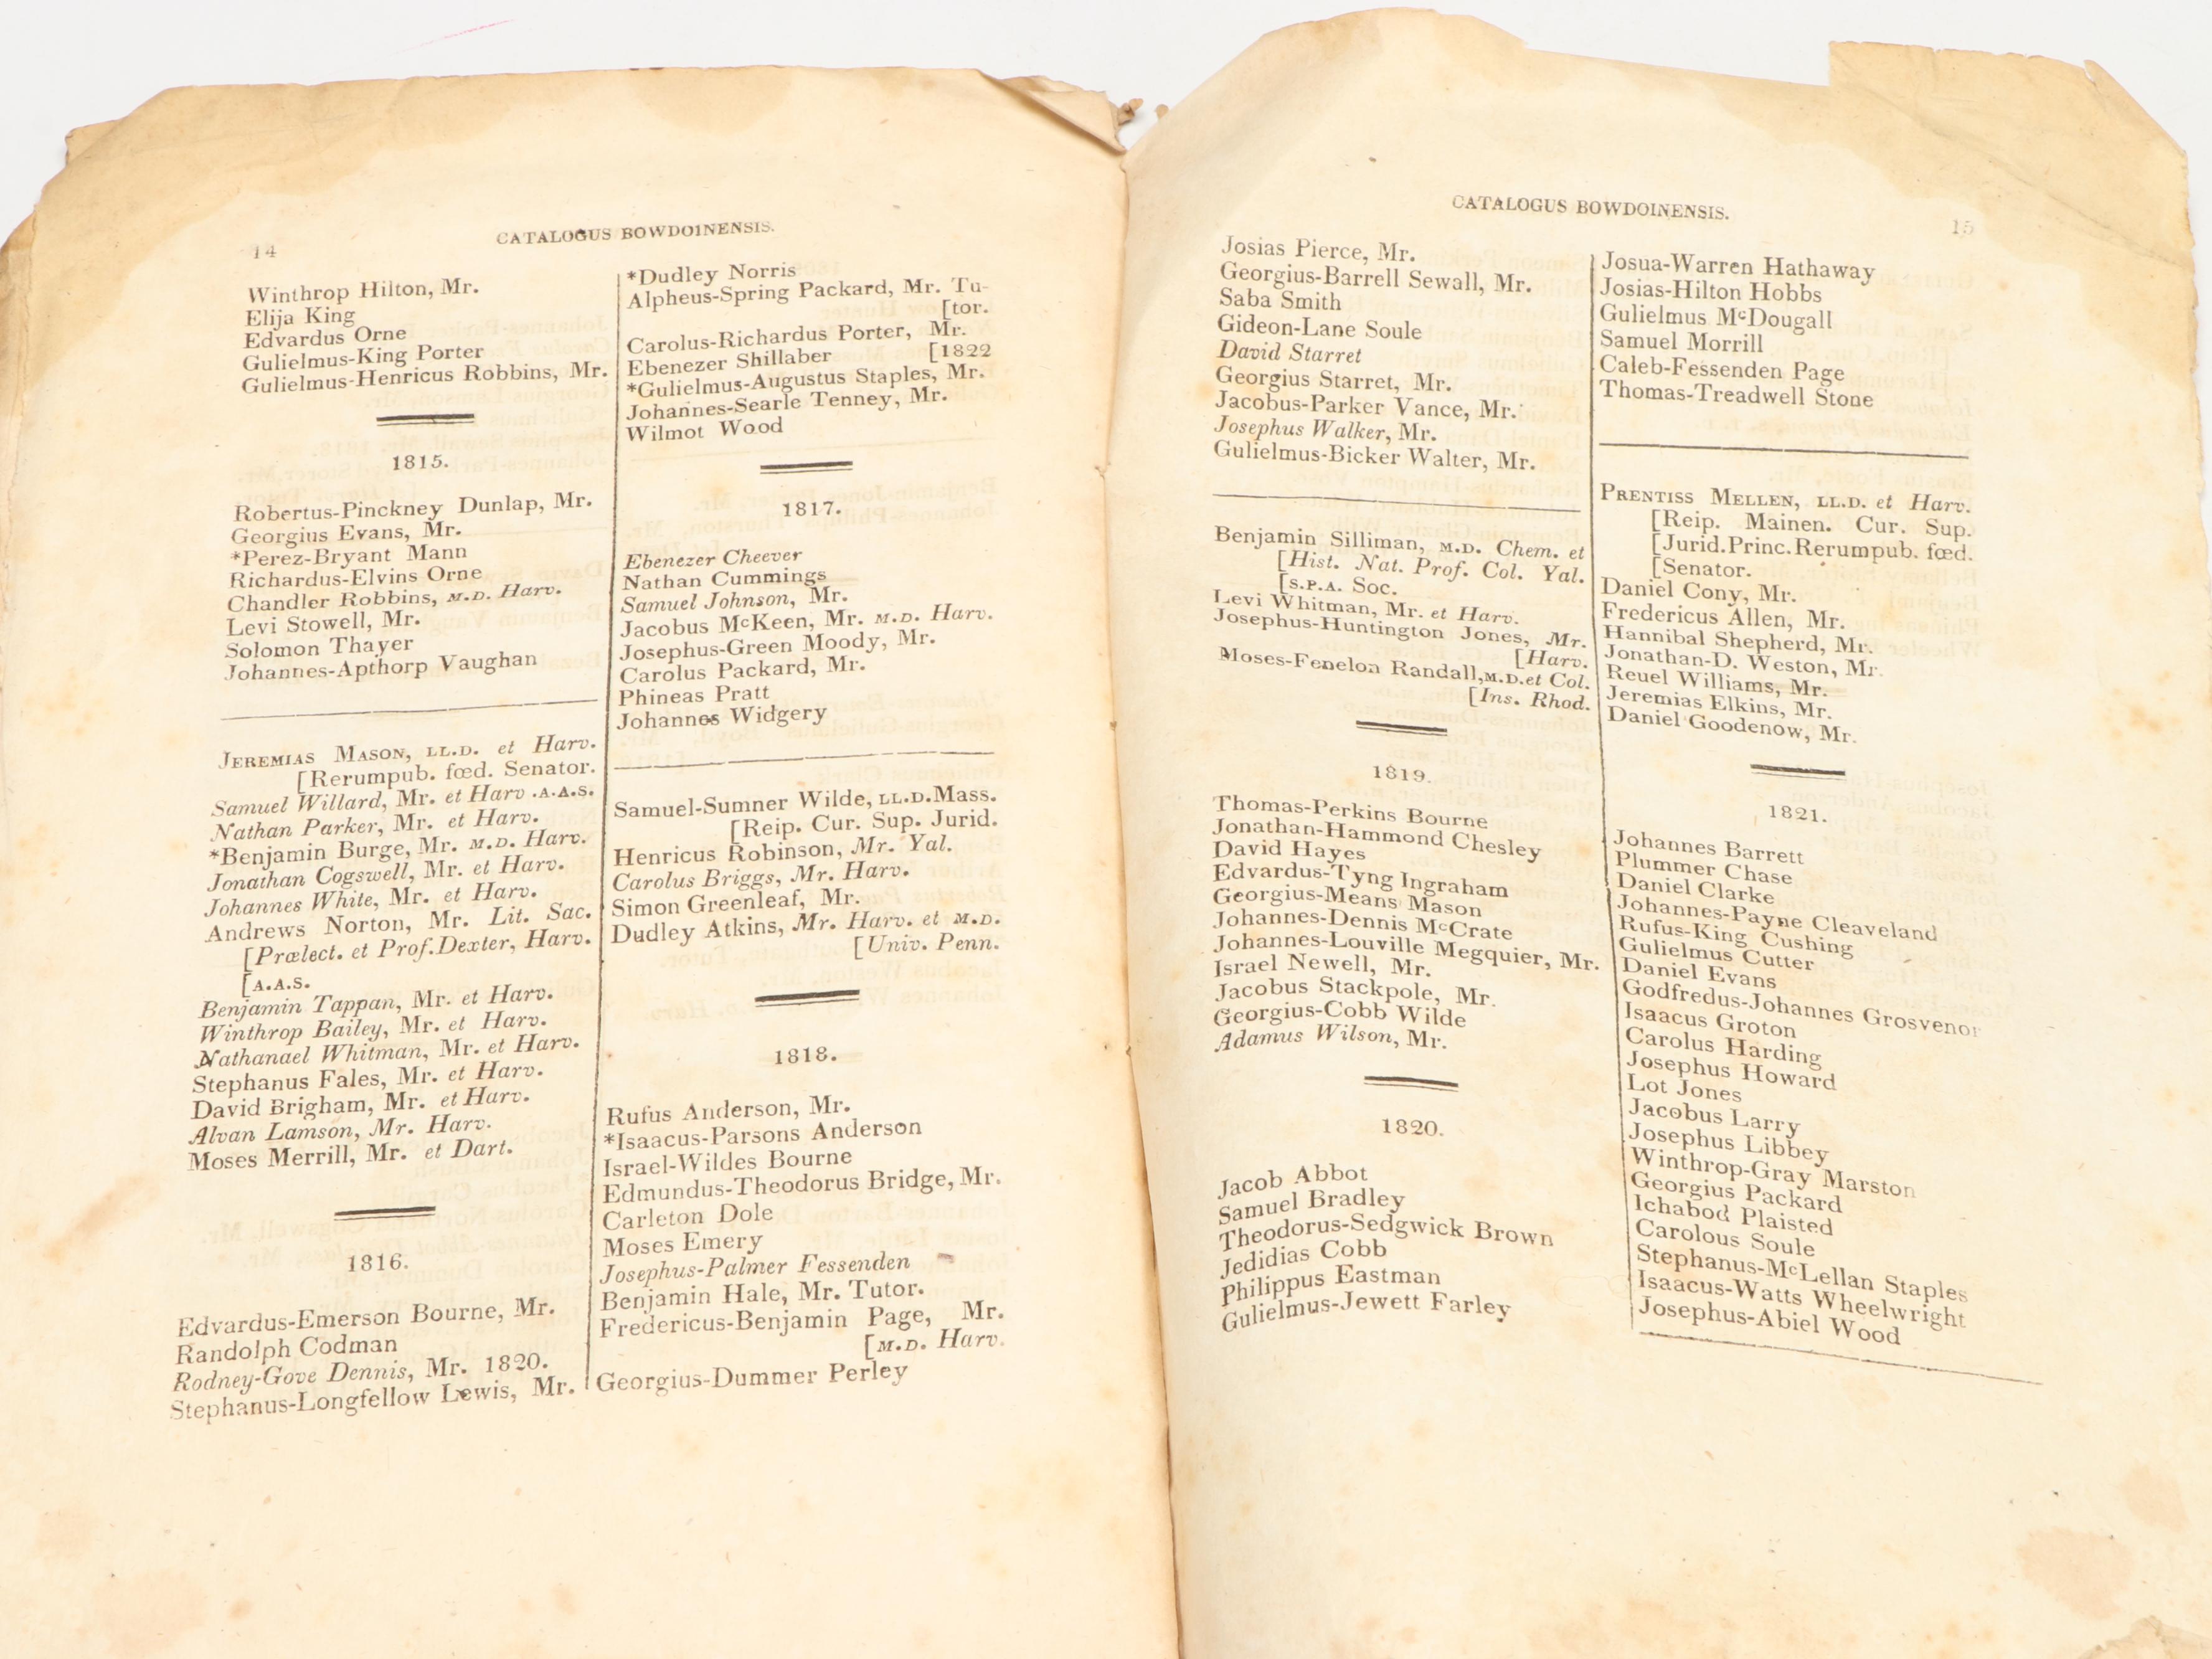 14
CATALOGUS BOWDOINENSIS.
Winthrop Hilton, Mr.
Elija King
Edvardus Orne
Gulielmus-King Porter
Gulielmus-Henricus Robbins, Mr.
1815.
Robertus-Pinckney Dunlap, Mr.
Georgius Evans, Mr.
*Perez-Bryant Mann
Richardus-Elvins Orne
Chandler Robbins, M.D. Harv.
Levi Stowell, Mr.
Solomon Thayer
Johannes-Apthorp Vaughan
JEREMIAS MASON, LL.D. et Harv.
[Rerumpub. fœd. Senator.
Samuel Willard, Mr. et Harv .A.A.S.
Nathan Parker, Mr. et Harv.
*Benjamin Burge, Mr. M.D. Harv.
Jonathan Cogswell, Mr. et Harv.
Johannes White, Mr. et Harv.
Andrews Norton, Mr. Lit. Sac.
[Prælect. et Prof.Dexter, Harv.
[A.A.S.
Benjamin Tappan, Mr. et Harv.
Winthrop Bailey, Mr. et Harv.
Nathanael Whitman, Mr. et Harv.
Stephanus Fales, Mr. et Harv.
David Brigham, Mr. et Harv.
Alvan Lamson, Mr. Harv.
Moses Merrill, Mr. et Dart.
1816.
Edvardus-Emerson Bourne, Mr.
Randolph Codman
Rodney-Gove Dennis, Mr. 1820.
Stephanus-Longfellow Lewis, Mr.
*Dudley Norris
Alpheus-Spring Packard, Mr. Tu-
[tor.
Carolus-Richardus Porter, Mr.
Ebenezer Shillaber [1822
*Gulielmus-Augustus Staples, Mr.
Johannes-Searle Tenney, Mr.
Wilmot Wood
1817.
Ebenezer Cheever
Nathan Cummings
Samuel Johnson, Mr.
Jacobus McKeen, Mr. M.D. Harv.
Josephus-Green Moody, Mr.
Carolus Packard, Mr.
Phineas Pratt
Johannes Widgery
Samuel-Sumner Wilde, LL.D.Mass.
[Reip. Cur. Sup. Jurid.
Henricus Robinson, Mr. Yal.
Carolus Briggs, Mr. Harv.
Simon Greenleaf, Mr.
Dudley Atkins, Mr. Harv. et M.D.
[Univ. Penn.
1818.
Rufus Anderson, Mr.
*Isaacus-Parsons Anderson
Israel-Wildes Bourne
Edmundus-Theodorus Bridge, Mr.
Carleton Dole
Moses Emery
Josephus-Palmer Fessenden
Benjamin Hale, Mr. Tutor.
Fredericus-Benjamin Page, Mr.
[M.D. Harv.
Georgius-Dummer Perley
CATALOGUS BOWDOINENSIS.
15
Josias Pierce, Mr.
Georgius-Barrell Sewall, Mr.
Saba Smith
Gideon-Lane Soule
David Starret
Georgius Starret, Mr.
Jacobus-Parker Vance, Mr.
Josephus Walker, Mr.
Gulielmus-Bicker Walter, Mr.
Benjamin Silliman, M.D. Chem. et
[Hist. Nat. Prof. Col. Yal.
[S.P.A. Soc.
Levi Whitman, Mr. et Harv.
Josephus-Huntington Jones, Mr.
[Harv.
Moses-Fenelon Randall,M.D.et Col.
[Ins. Rhod.
1819.
Thomas-Perkins Bourne
Jonathan-Hammond Chesley
David Hayes
Edvardus-Tyng Ingraham
Georgius-Means Mason
Johannes-Dennis McCrate
Johannes-Louville Megquier, Mr.
Israel Newell, Mr.
Jacobus Stackpole, Mr.
Georgius-Cobb Wilde
Adamus Wilson, Mr.
1820.
Jacob Abbot
Samuel Bradley
Theodorus-Sedgwick Brown
Jedidias Cobb
Philippus Eastman
Gulielmus-Jewett Farley
Josua-Warren Hathaway
Josias-Hilton Hobbs
Gulielmus McDougall
Samuel Morrill
Caleb-Fessenden Page
Thomas-Treadwell Stone
PRENTISS MELLEN, LL.D. et Harv.
[Reip. Mainen. Cur. Sup.
[Jurid.Princ.Rerumpub. fœd.
[Senator.
Daniel Cony, Mr.
Fredericus Allen, Mr.
Hannibal Shepherd, Mr.
Jonathan-D. Weston, Mr.
Reuel Williams, Mr.
Jeremias Elkins, Mr.
Daniel Goodenow, Mr.
1821.
Johannes Barrett
Plummer Chase
Daniel Clarke
Johannes-Payne Cleaveland
Rufus-King Cushing
Gulielmus Cutter
Daniel Evans
Godfredus-Johannes Grosvenor
Isaacus Groton
Carolus Harding
Josephus Howard
Lot Jones
Jacobus Larry
Josephus Libbey
Winthrop-Gray Marston
Georgius Packard
Ichabod Plaisted
Carolous Soule
Stephanus-McLellan Staples
Isaacus-Watts Wheelwright
Josephus-Abiel Wood